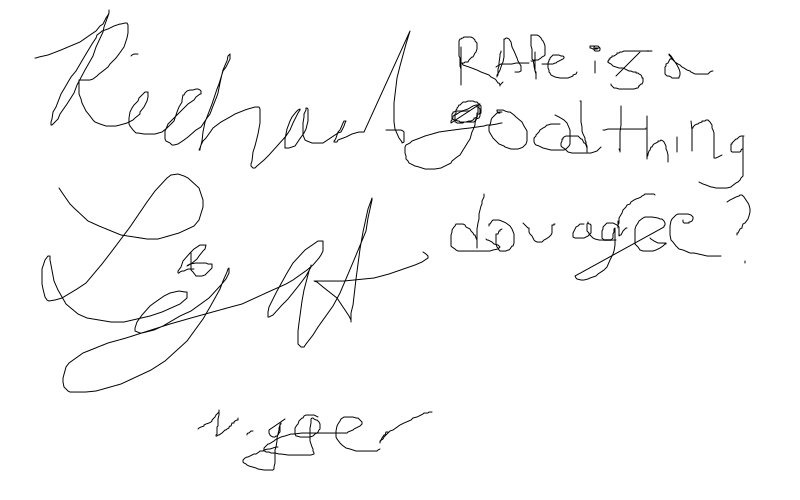 Richard
RAPe is a
good thing
do u agree?
nigger